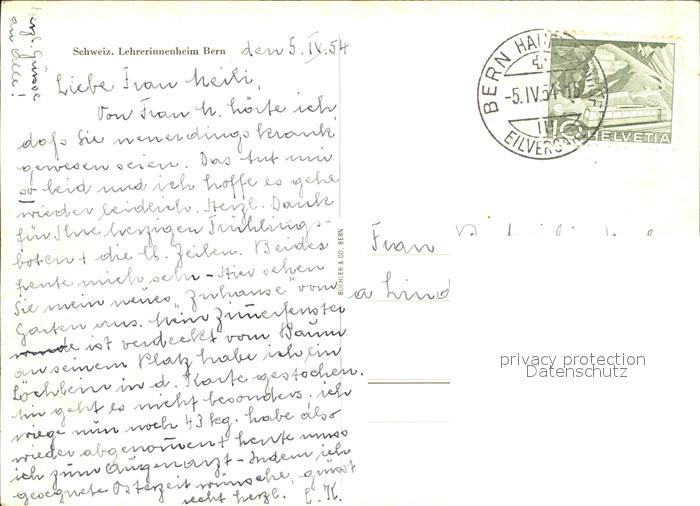 Herzl. Grüsse
an Alle!
Schweiz. Lehrerinnenheim Bern den 5. IV. 54
Liebe Frau Meili,
Von Frau M. hörte ich
dass Sie neuerdings krank
gewesen seien. Das tut mir
so leid und ich hoffe es gehe
wieder leidlich. Herzl. Dank
für Ihre herzigen Frühlings-
boten + die lb. Zeilen. Beides
freute mich sehr - Hier sehen
Sie mein neues "Zuhause" vom
Garten aus. Mein Zimmerfenster
ist verdeckt vom Baum
an seinem Platz habe ich ein
Löchlein in d. Karte gestochen.
Mir geht es nicht besonders. ich
wiege nun noch 43 kg. habe also
wieder abgenommen + heute muss
ich zum Augenarzt - Indem ich
gesegnete Osterzeit wünsche, grüsst
recht herzl. E. K.
BÜCHLER & CO. BERN
BERN
-5.IV.54-
III
HELVETIA
10
Frau
a Lind
privacy protection
Datenschutz